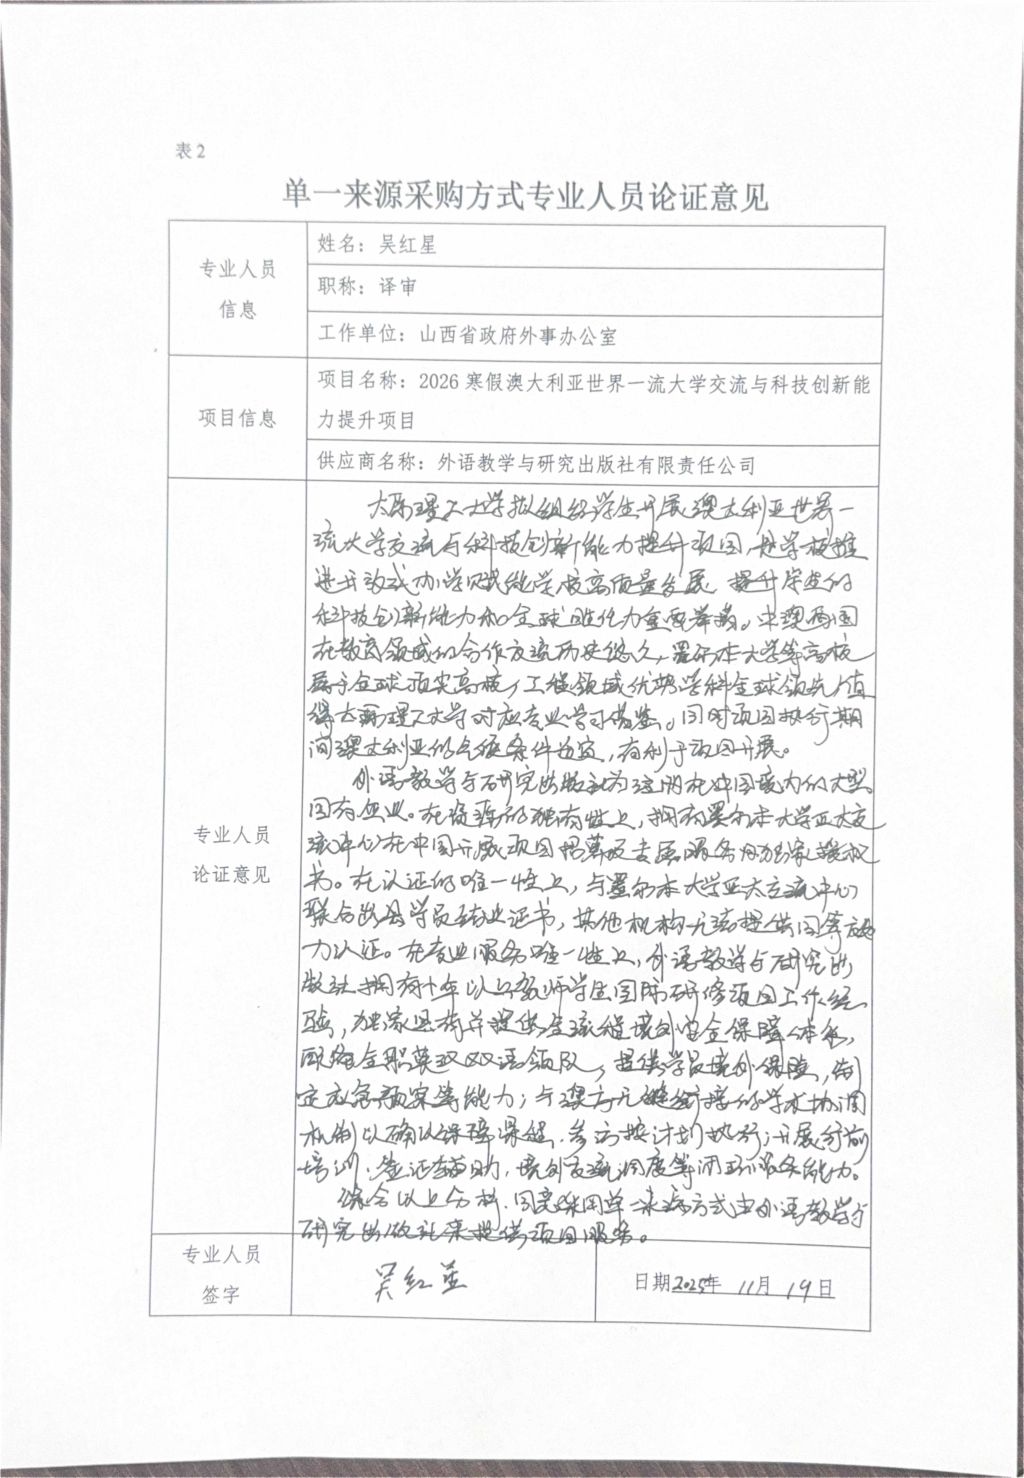 表2
单一来源采购方式专业人员论证意见
专业人员
信息
姓名：吴红星
职称：译审
工作单位：山西省政府外事办公室
项目信息
项目名称：2026寒假澳大利亚世界一流大学交流与科技创新能
力提升项目
供应商名称：外语教学与研究出版社有限责任公司
专业人员
论证意见
太原理工大学拟组织学生开展澳大利亚世界一
流大学交流与科技创新能力提升项目，是学校推
进开放式办学赋能学校高质量发展，提升学生的
科技创新能力和全球胜任力重要举措。中澳两国
在教育领域的合作交流历史悠久，墨尔本大学等高校
属于全球顶尖高校，工程领域优势学科全球领先，值
得太原理工大学对应专业学习借鉴。同时项目执行期
间澳大利亚的气候条件适宜，有利于项目开展。
外语教学与研究出版社为注册在中国境内的大型
国有企业。在资源的独有性上，拥有墨尔本大学亚太交
流中心在中国开展项目招募及专属服务的独家授权
书。在认证的唯一性上，与墨尔本大学亚太交流中心
联合出具学员结业证书，其他机构无法提供同等效
力认证。在专业服务唯一性上，外语教学与研究出
版社拥有十年以上教师学生国际研修项目工作经
验，独家具有并提供全流程境外安全保障体系，
配备全职英汉双语领队，提供学员境外保险，制
定应急预案等能力；与澳方无缝衔接的学术协调
机制以确认保障课程、参访按计划执行；开展行前
培训、签证辅助、境外交流调度等闭环服务能力。
综合以上分析，同意采用单一来源方式由外语教学与
研究出版社来提供项目服务。
专业人员
签字
吴红星
日期2025年 11月 19日